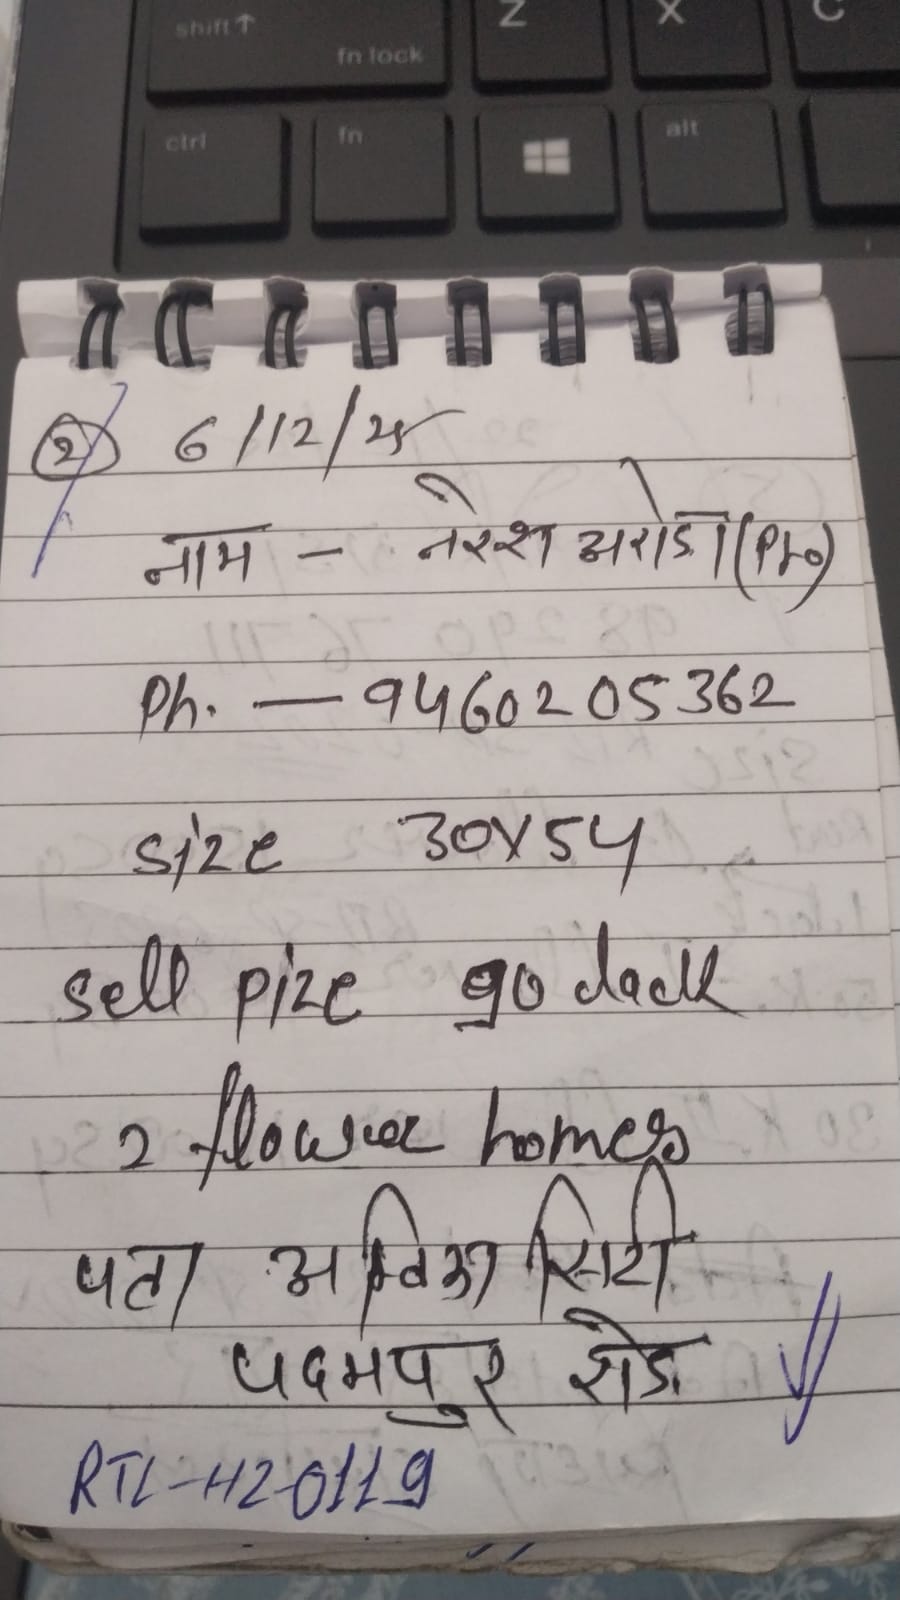 shift↑
fn lock
Z
X
C
ctrl
fn
alt
② 6/12/25
नाम - नरेश अरोड़ा (Pro)
Ph. — 9460205362
size 30X54
sell pize 90 lack
2 flower homes
पता अम्बिका सिटी
पदमपुर रोड
RTL-H2-0119